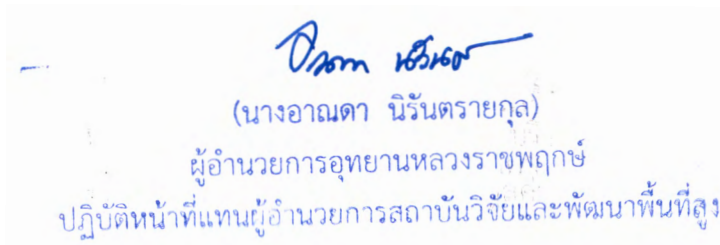 (นางอาณดา นิรันตรายกุล)
ผู้อำนวยการอุทยานหลวงราชพฤกษ์
ปฏิบัติหน้าที่แทนผู้อำนวยการสถาบันวิจัยและพัฒนาพื้นที่สูง